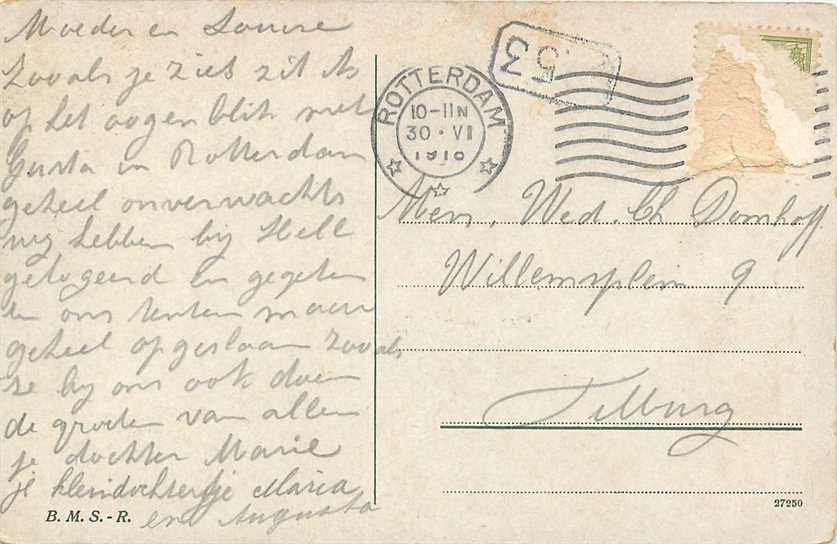 Moeder en Louise
Zooals je ziet zit ik
op het oogenblik met
Gusta in Rotterdam
geheel onverwachts
wij hebben bij Hell
gelogeerd en gegeten
en ons tenten maar
geheel opgeslaan zooals
ze bij ons ook doen
de groeten van allen
je dochter Marie
je kleindochtertje Maria
en Augusta
B. M. S.-R.
53
ROTTERDAM
10-11N
30 · VI
1918
Mevr, Wed. Ch Domhoff
Willemsplein 9
Tilburg
27250